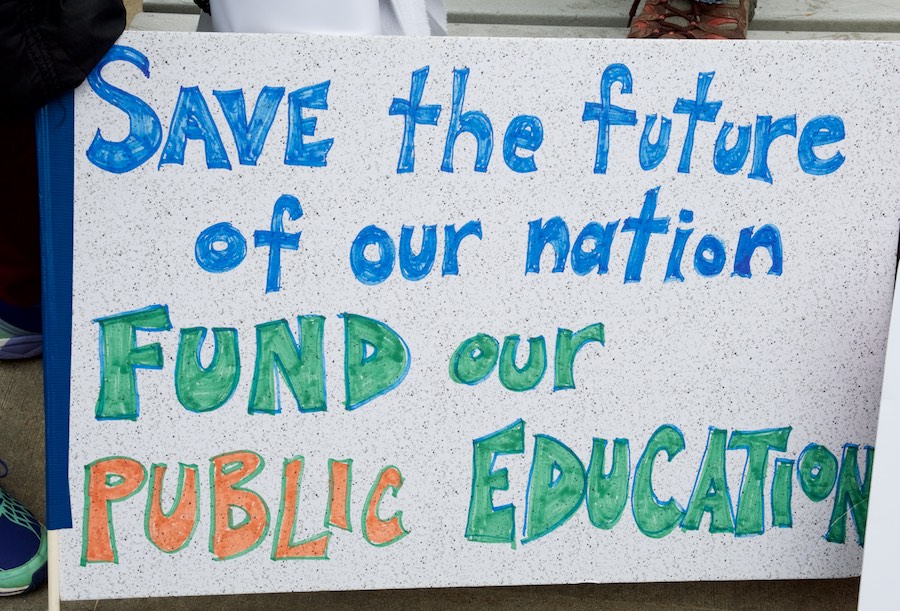 SAVE the future
of our nation
FUND our
PUBLIC EDUCATION